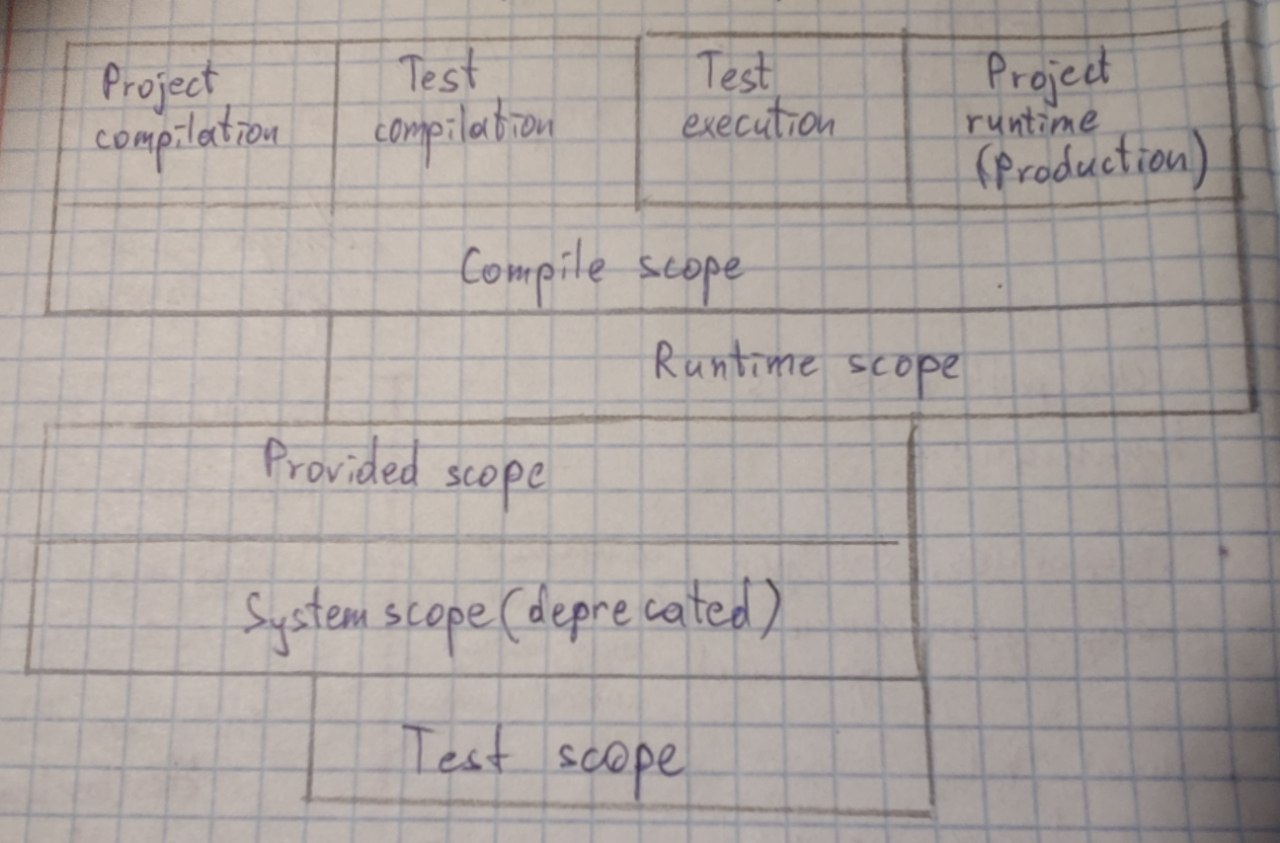 Project
compilation
Test
compilation
Test
execution
Project
runtime
(Production)
Compile scope
Runtime scope
Provided scope
System scope (deprecated)
Test scope